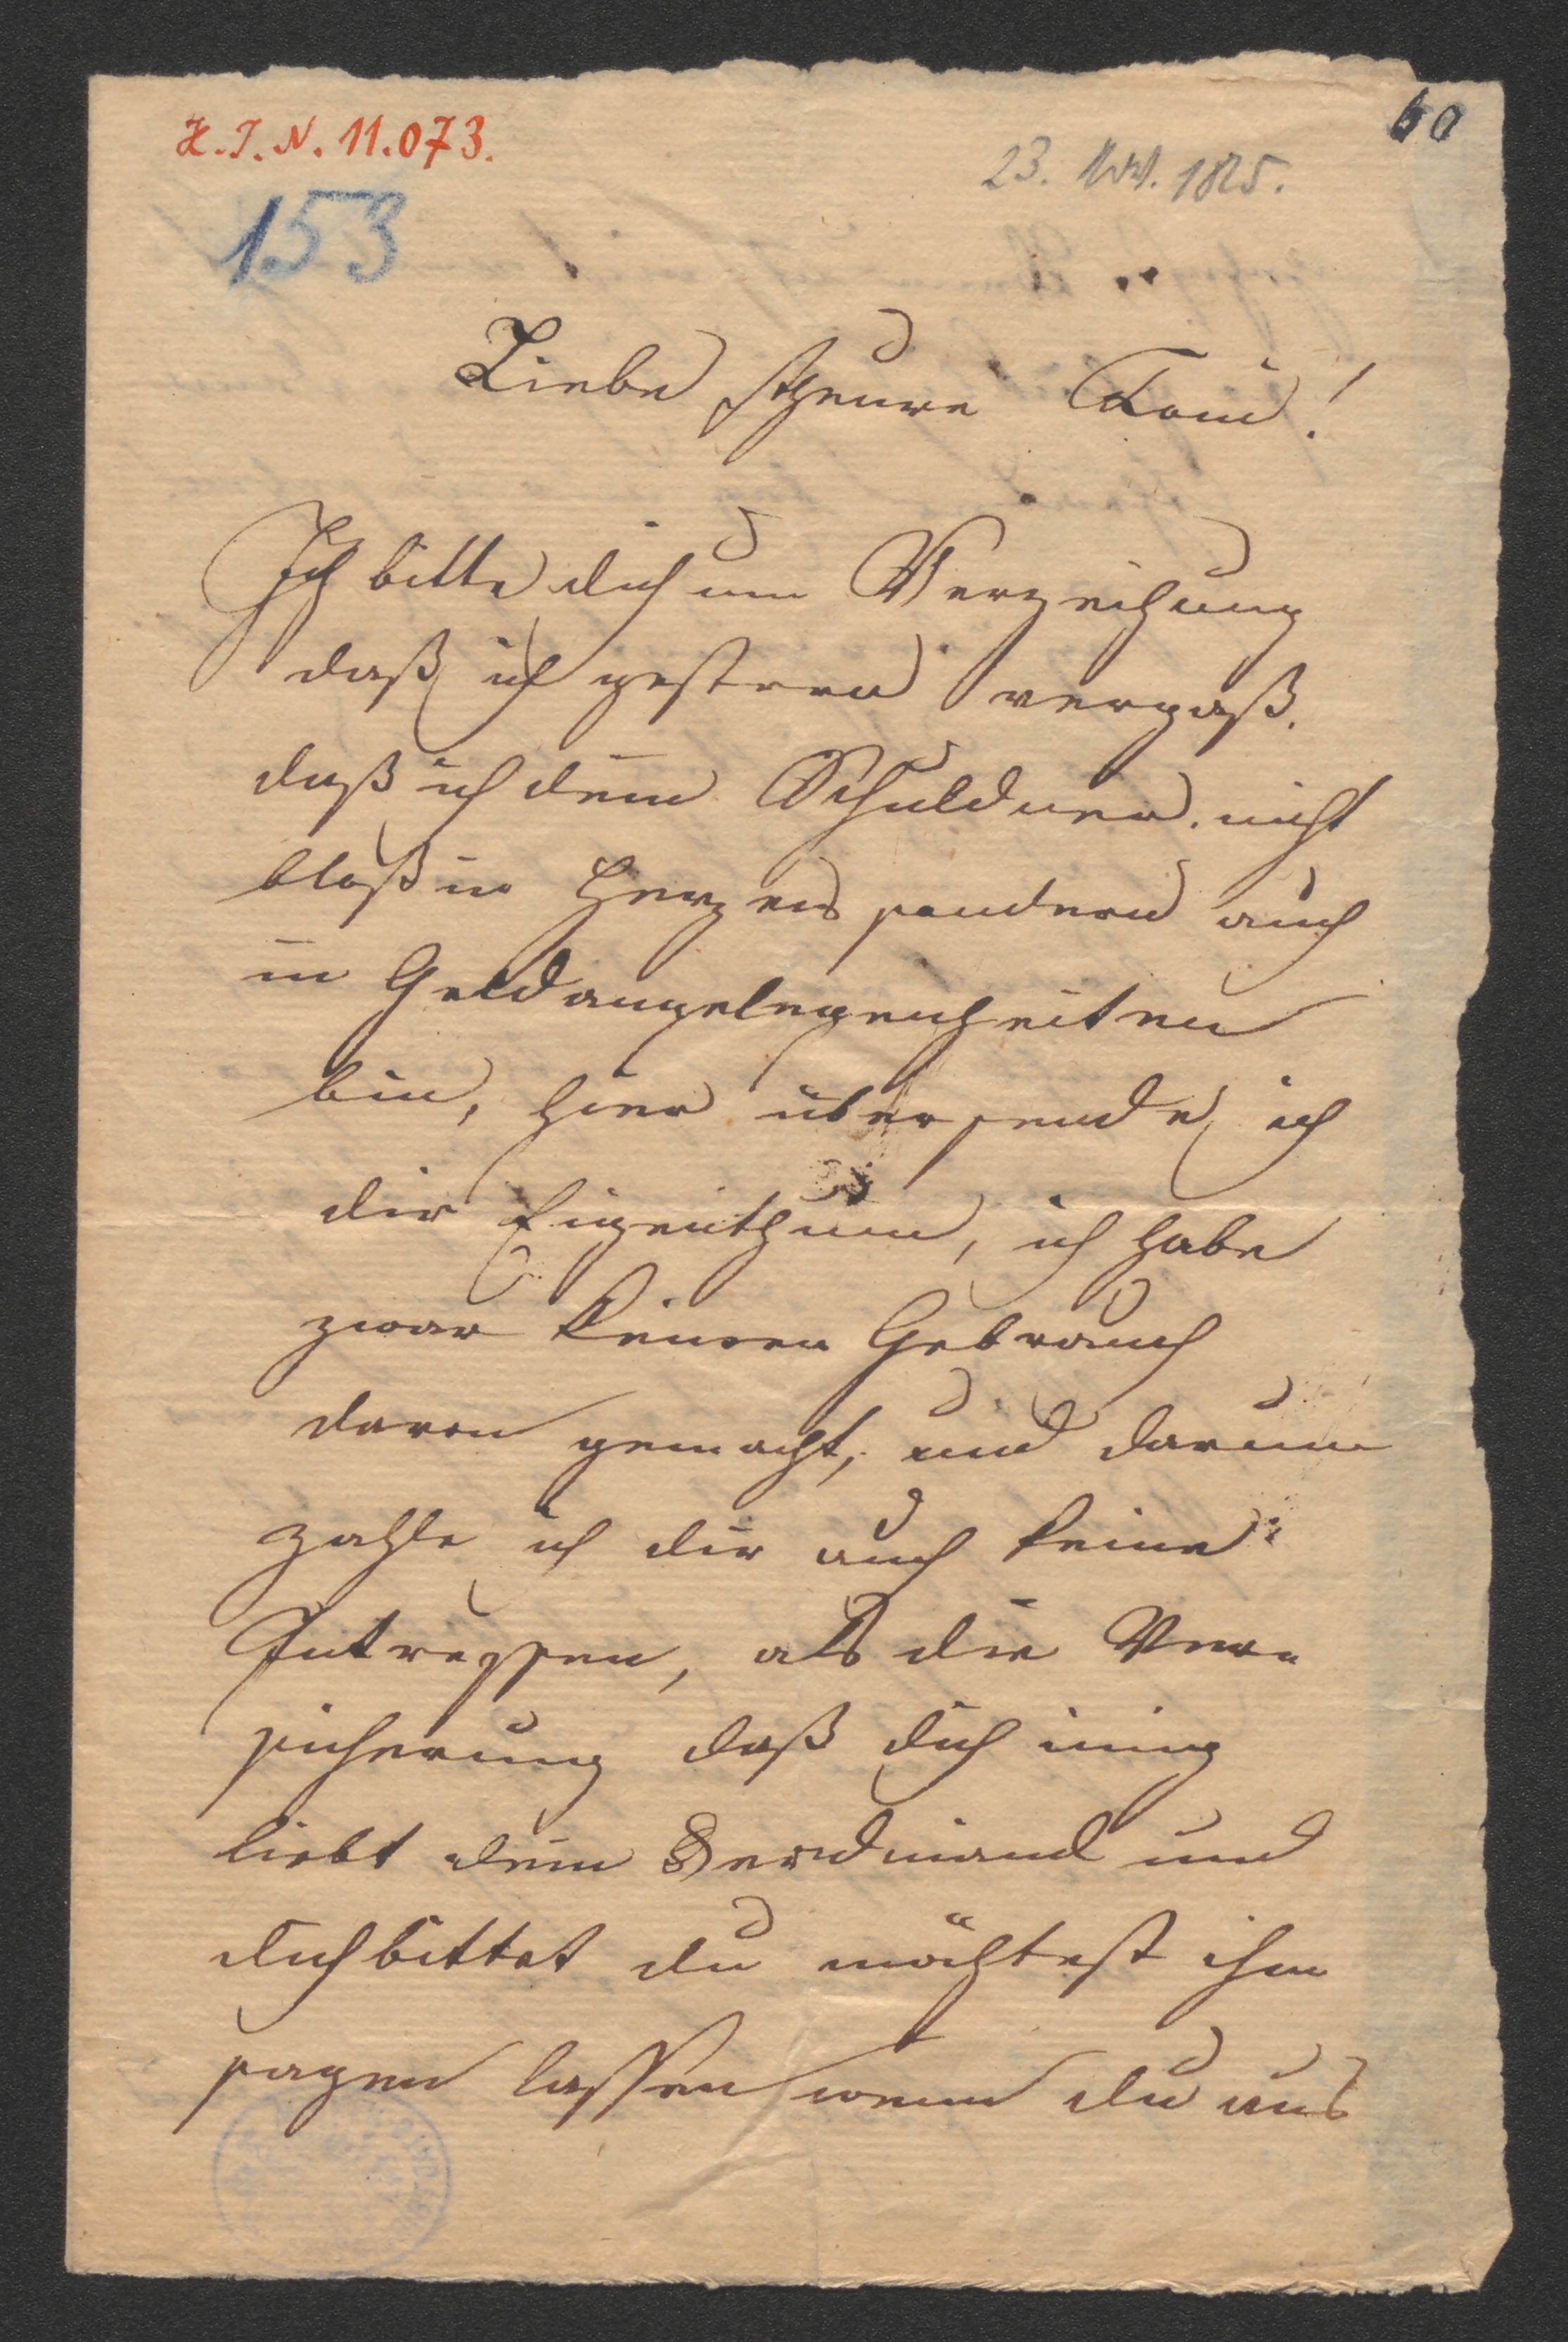 H.I.N. 11.073.
60
23. Nov. 1825.
153
Liebe theure Toni!
Ich bitte dich um Verzeihung
daß ich gestern vergaß.
daß ich dein Schuldner. nicht
bloß in Herzens sondern auch
in Geldangelegenheiten
bin, hier übersende ich
dir Eigenthum, ich habe
zwar keinen Gebrauch
davon gemacht, und darum
zahle ich dir auch keine
Intressen, als die Ver=
sicherung daß dich innig
liebt dein Ferdinand und
dich bittet du möchtest ihm
sagen lassen wenn du aus